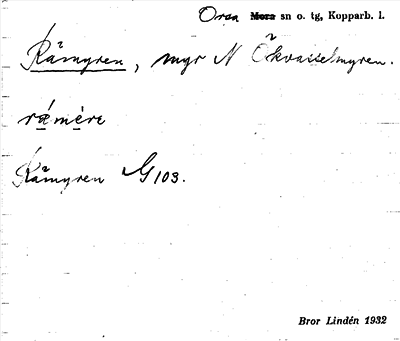 Orsa Mora sn o. tg, Kopparb. l.
Råmyren, myr N Ökvasselmyren.
råmère
Råmyren G103.
Bror Lindén 1932